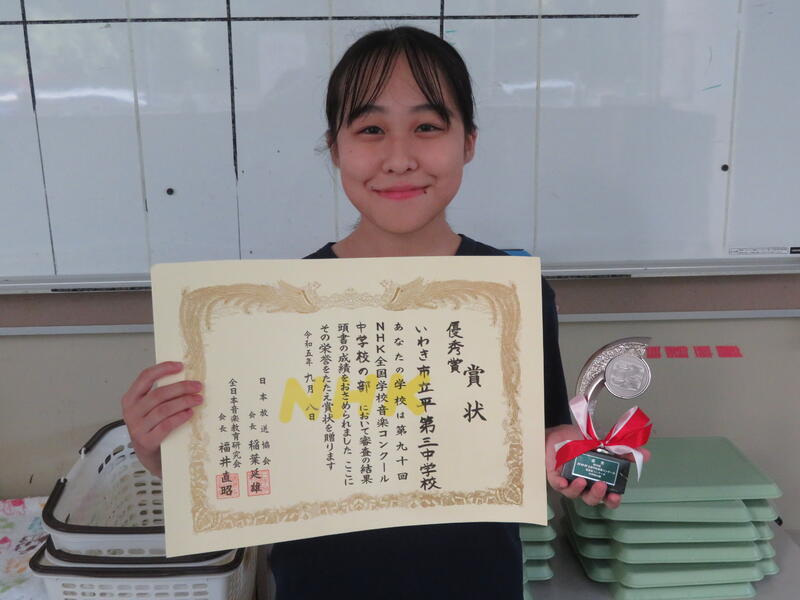 賞状
優秀賞
いわき市立平第三中学校
あなたの学校は第九十回
NHK全国学校音楽コンクール
中学校の部において審査の結果
頭書の成績をおさめられました ここに
その栄誉をたたえ賞状を贈ります
令和五年九月八日
日本放送協会
会長 稲葉延雄
全日本音楽教育研究会
会長 福井直昭
NHK